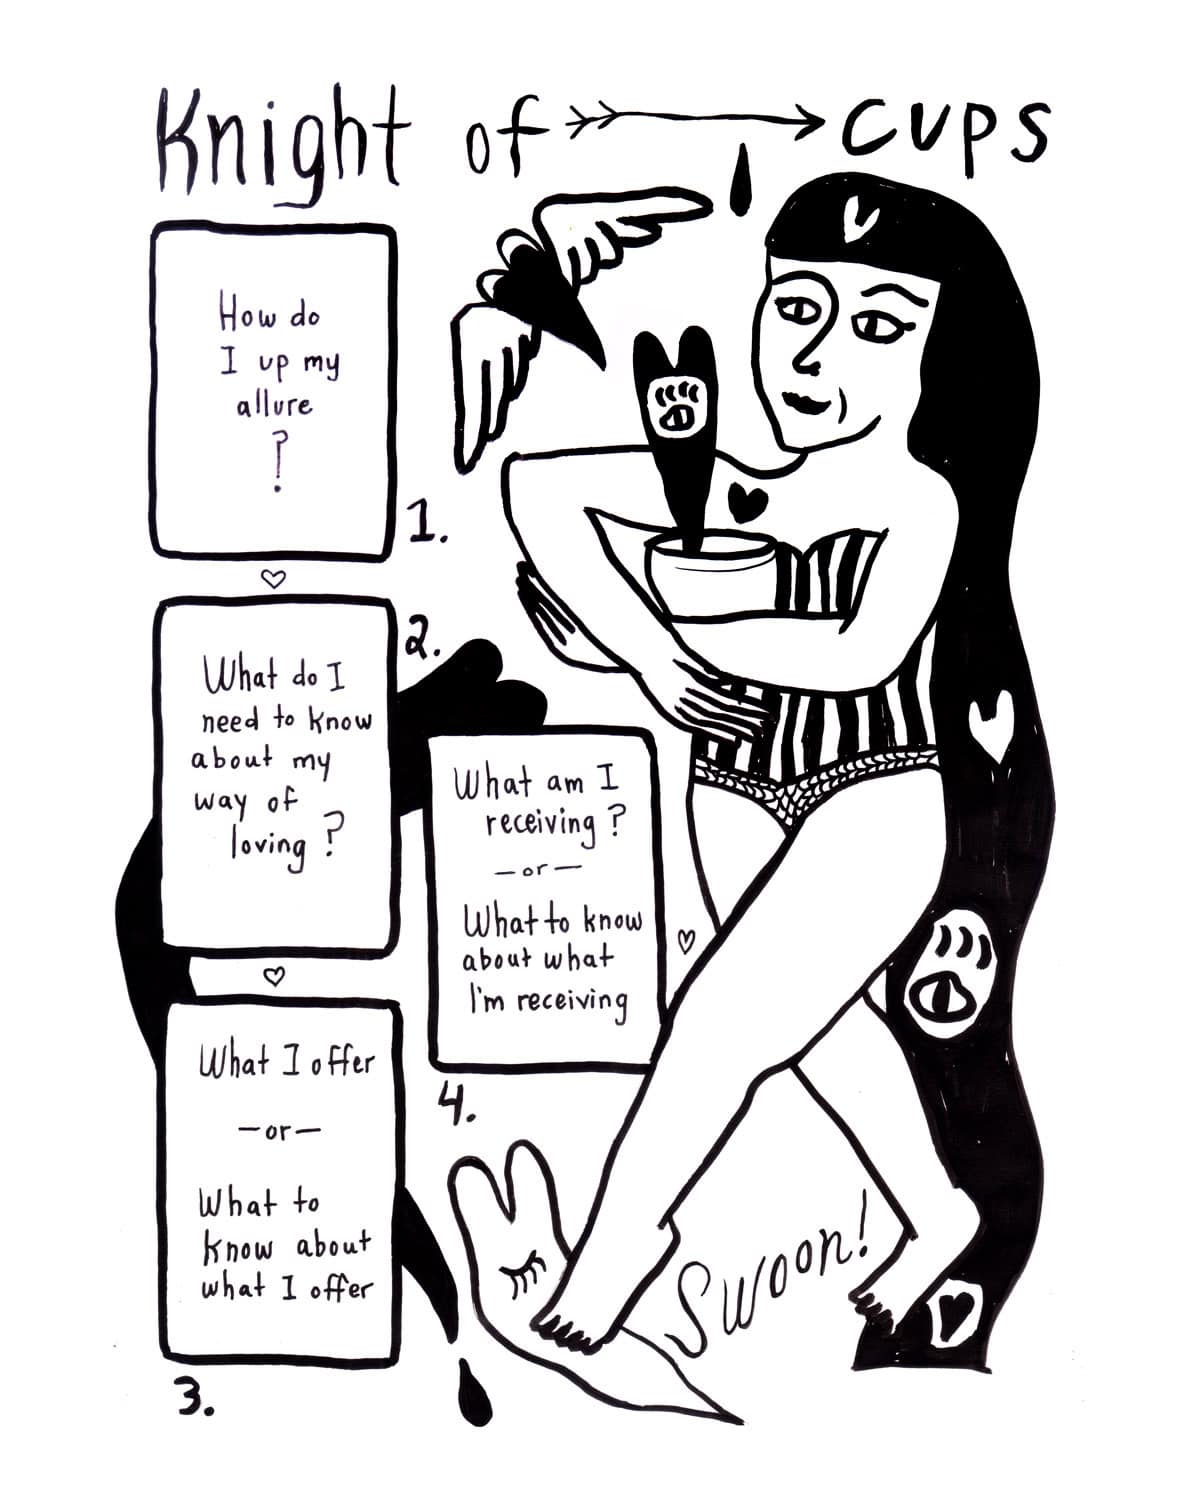 Knight of cups
How do
I up my
allure
?
1.
2.
What do I
need to know
about my
way of
loving?
What am I
receiving?
—or—
What to know
about what
I'm receiving
4.
What I offer
—or—
What to
know about
what I offer
3.
Swoon!